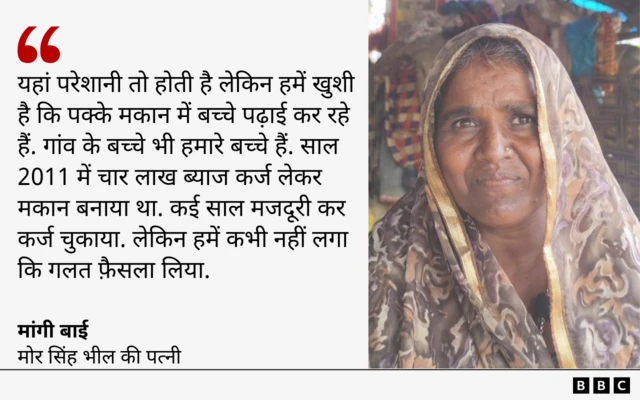 यहां परेशानी तो होती है लेकिन हमें खुशी
है कि पक्के मकान में बच्चे पढ़ाई कर रहे
हैं. गांव के बच्चे भी हमारे बच्चे हैं. साल
2011 में चार लाख ब्याज कर्ज लेकर
मकान बनाया था. कई साल मजदूरी कर
कर्ज चुकाया. लेकिन हमें कभी नहीं लगा
कि गलत फ़ैसला लिया.
मांगी बाई
मोर सिंह भील की पत्नी
BBC